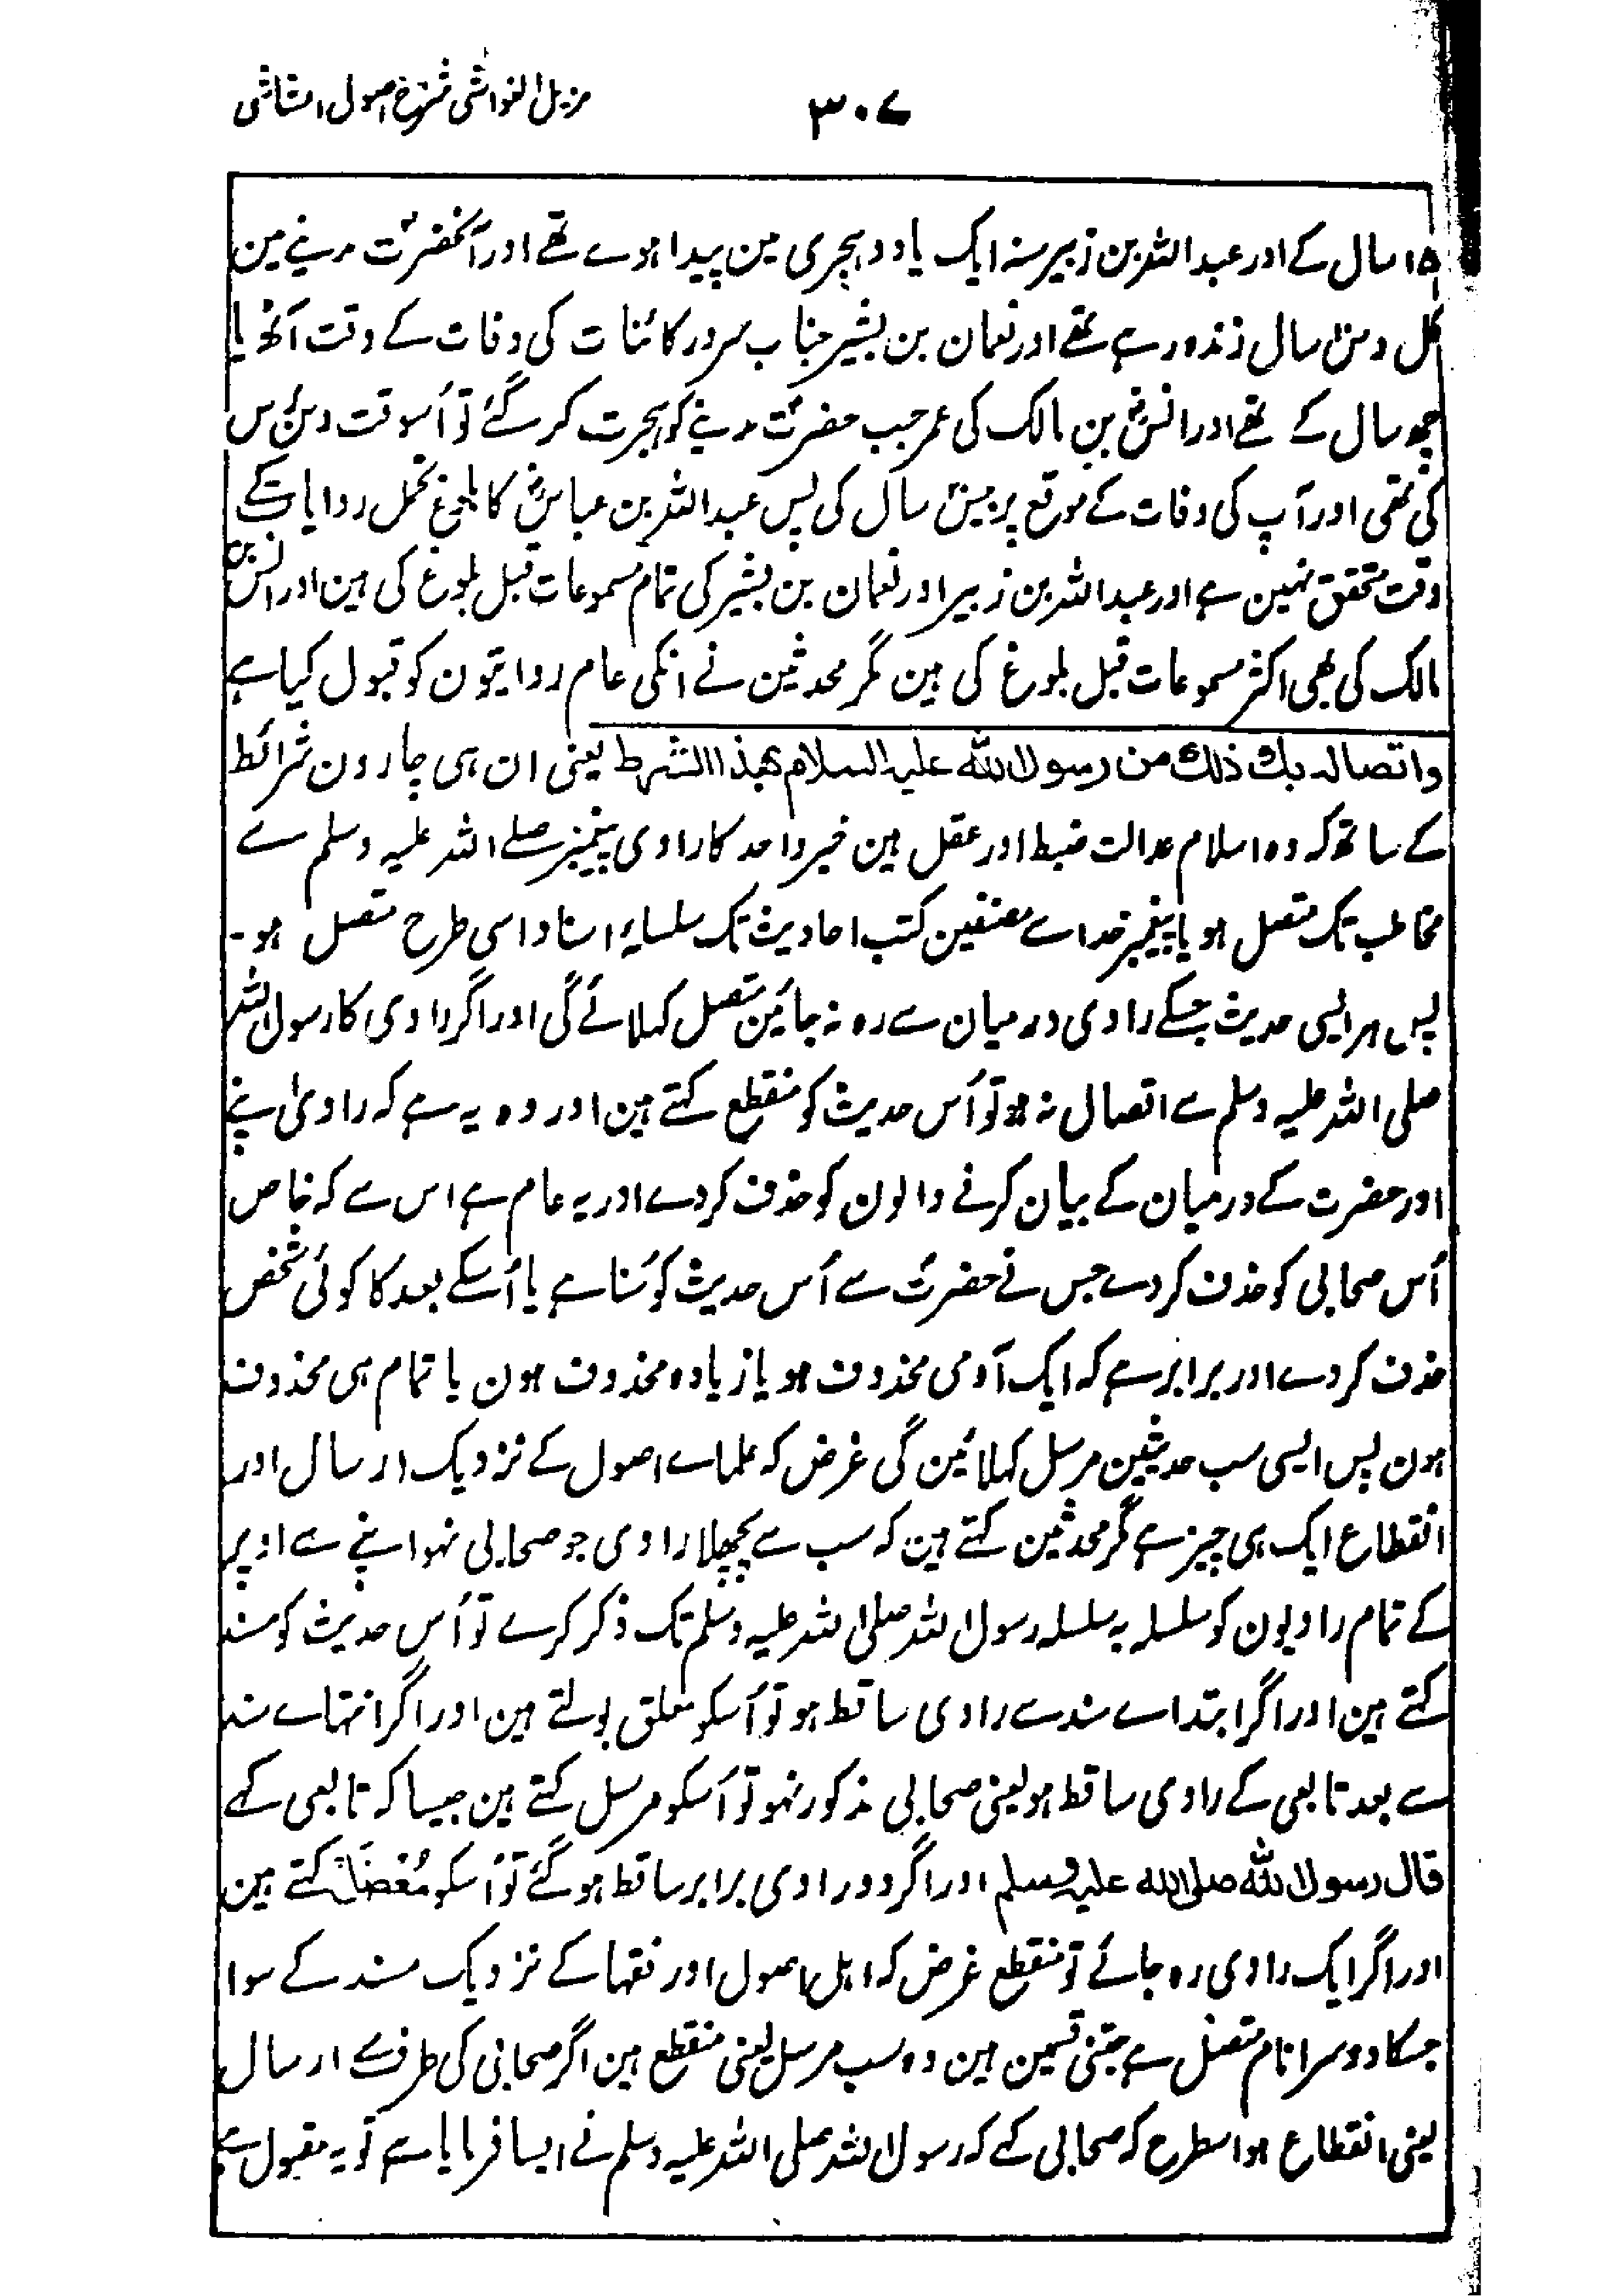 مزیل الغواشی شرح اصول الشاشی
۳۰۷
۱۵ سال کے اور عبد اللہ بن زبیر سنہ ایک یا دو ہجری مین پیدا ہوے تھے اور آنحضرت مدینے مین
کل دس سال زندہ رہے تھے اور نعمان بن بشیر جناب سرور کائنات کی وفات کے وقت آٹھ یا
چھ سال کے تھے اور انسؓ بن مالک کی عمر جب حضرت مدینے کو ہجرت کر گئے تو اُسوقت دس س
کی تھی اور آپ کی وفات کے موقع پر بیس سال کی پس عبد اللہ بن عباسؓ کا بلوغ تحمل روایات کے
وقت متحقق نہین ہے اور عبد اللہ بن زبیر اور نعمان بن بشیر کی تمام مسموعات قبل بلوغ کی ہین اور انسؓ بن
مالک کی بھی اکثر مسموعات قبل بلوغ کی ہین مگر محدثین نے انکی عام روایتون کو قبول کیا ہے
واتصالہ بک ذلک من رسول اللہ علیہ السلام بھذا الشرط یعنی ان ہی چارون شرائط
کے ساتھ کہ وہ اسلام عدالت ضبط اور عقل ہین خبر واحد کا راوی پیغمبر صلے اللہ علیہ وسلم سے
مخاطب تک متصل ہو یا پیغمبر خدا سے مصنفین کتب احادیث تک سلسلۂ اسناد اسی طرح متصل ہو۔
پس ہر ایسی حدیث جسکے راوی درمیان سے رہ نہ جائین متصل کہلائے گی اور اگر راوی کا رسول اللہ
صلی اللہ علیہ وسلم سے اتصال نہ ہو تو اُس حدیث کو منقطع کہتے ہین اور وہ یہ ہے کہ راوی اپنے
اور حضرت کے درمیان کے بیان کرنے والون کو حذف کر دے اور یہ عام ہے اس سے کہ خاص
اُس صحابی کو حذف کر دے جس نے حضرت سے اُس حدیث کو سُنا ہے یا اُسکے بعد کا کوئی شخص
حذف کر دے اور برابر ہے کہ ایک آدمی محذوف ہو یا زیادہ محذوف ہون یا تمام ہی محذوف
ہون پس ایسی سب حدیثین مرسل کہلائین گی غرض کہ علماے اصول کے نزدیک ارسال اور
انقطاع ایک ہی چیز ہے مگر محدثین کہتے ہین کہ سب سے پچھلا راوی جو صحابی نہو اپنے سے اوپر
کے تمام راویون کو سلسلہ بہ سلسلہ رسول اللہ صلی اللہ علیہ وسلم تک ذکر کرے تو اُس حدیث کو مسند
کہتے ہین اور اگر ابتداے سند سے راوی ساقط ہو تو اُسکو معلق بولتے ہین اور اگر انتہاے سند
سے بعد تابعی کے راوی ساقط ہو یعنی صحابی مذکور نہو تو اُسکو مرسل کہتے ہین جیسا کہ تابعی کہے
قال رسول اللہ صلی اللہ علیہ وسلم اور اگر دو راوی برابر ساقط ہو گئے تو اُسکو مُعْضَل کہتے ہین
اور اگر ایک راوی رہ جائے تو منقطع غرض کہ اہل اصول اور فقہا کے نزدیک مسند کے سوا
جسکا دوسرا نام متصل ہے جتنی قسمین ہین وہ سب مرسل یعنی منقطع ہین اگر صحابی کی طرف سے ارسال
یعنی انقطاع ہو اسطرح کہ صحابی کہے کہ رسول اللہ صلی اللہ علیہ وسلم نے ایسا فرمایا ہے تو یہ مقبول ہے